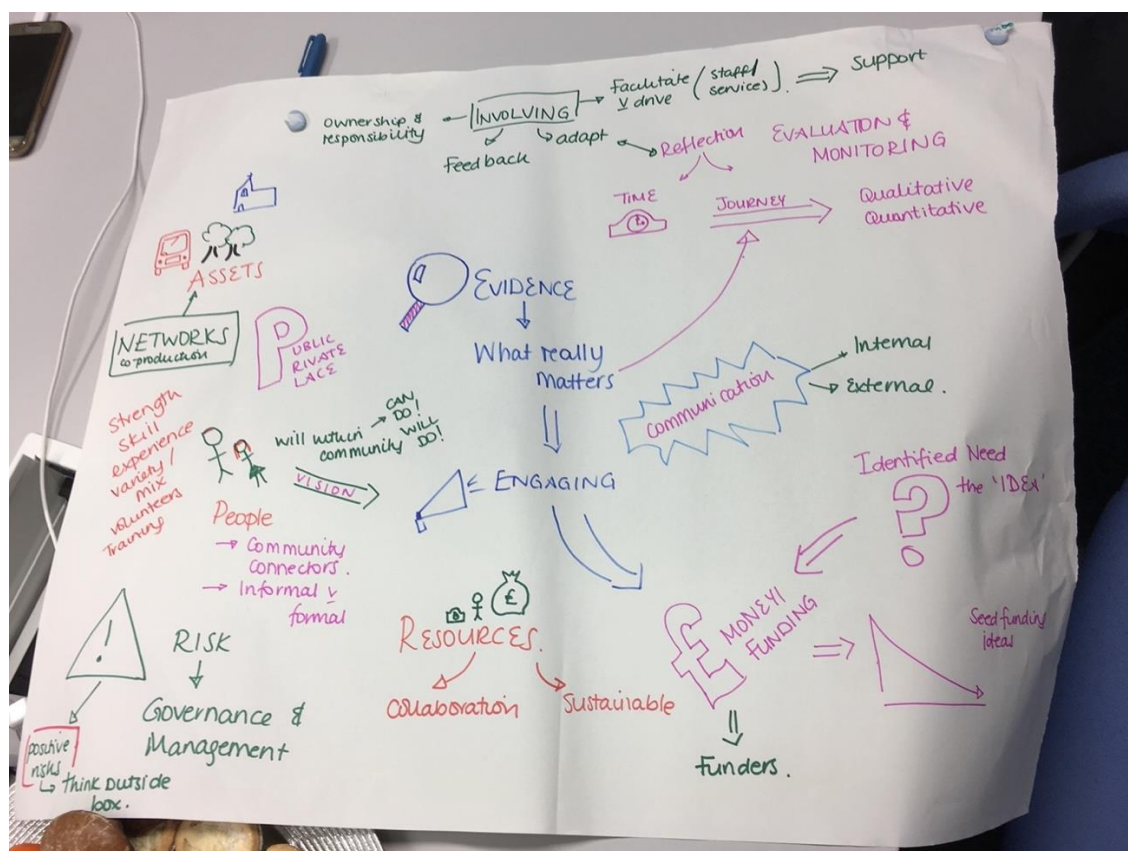 ownership &
responsibility
INVOLVING
Feedback
adapt
Facilitate
v drive
(staff/
services).
Support
Reflection
EVALUATION &
MONITORING
TIME
JOURNEY
Qualitative
Quantitative
ASSETS
NETWORKS
co-production
PUBLIC
RIVATE
LACE
EVIDENCE
What really
matters
communication
Internal
External.
Strength
Skill
experience
variety/
mix
volunteers
Training
will within
community
CAN
DO!
WILL
DO!
VISION
ENGAGING
People
Community
connectors.
Informal v
formal
Identified Need
the 'IDEA'
?
!
RISK
Governance &
Management
positive
risks
think outside
box.
£
RESOURCES.
Collaboration
Sustainable
£
MONEY/
FUNDING
Funders.
Seed funding
ideas